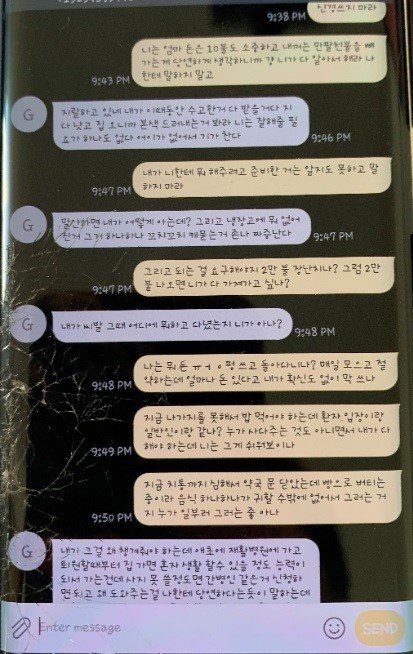 신경쓰지 마라
9:38 PM
니는 엄마 돈은 10불도 소중하고 내꺼는 만팔천불을 빼
가는게 당연하게 생각하니까 걍 니가 다 알아서 해라 나
한테 말하지 말고
9:43 PM
G
지랄하고 있네 내가 이때동안 수고한거 다 받을거다 지
다 낫고 집 오니까 본색 드러내는거 봐라 니는 잘해줄 필
요가 하나도 없다 어이가 없어서 기가 찬다
9:46 PM
내가 니한테 뭐 해주려고 준비한 거는 알지도 못하고 말
하지 마라
9:47 PM
G
말안하면 내가 어떻게 아는데? 그리고 냉장고에 뭐 없어
진거 그거 하나하나 꼬치꼬치 캐묻는거 존나 짜증난다
9:47 PM
그리고 되는 걸 요구해야지 2만 불 장난치나? 그럼 2만
불 나오면 니가 다 가져가고 싶나?
9:47 PM
G
내가 씨발 그때 어디에 뭐하고 다녔는지 니가 아나?
9:48 PM
나는 뭐 돈 ㅠㅕㅇ펑 쓰고 돌아다니나? 매일 모으고 절
약하는데 얼마나 돈 있다고 내가 확신도 없이 막 쓰나
9:48 PM
지금 나가지를 못해서 밥 먹어야 하는데 환자 입장이랑
일반인이랑 같나? 누가 사다주는 것도 아니면서 내가 다
해야 하는데 니는 그게 쉬워보이나
9:49 PM
지금 치통까지 심해서 약국 문 닫았는데 빵으로 버티는
중이라 음식 하나하나가 귀할 수밖에 없어서 그러는 거
지 누가 일부러 그러는 줄 아나
9:50 PM
G
내가 그걸 왜 챙겨줘야 하는데 애초에 재활병원에 가고
퇴원할때부터 집 가면 혼자 생활 할수 있을 정도 능력이
되서 가는건데 사지 못 쓸정도면 간병인 같은거 신청하
면 되고 왜 도와주는걸 나한테 당연하다는듯이 말하는데
Enter message
SEND